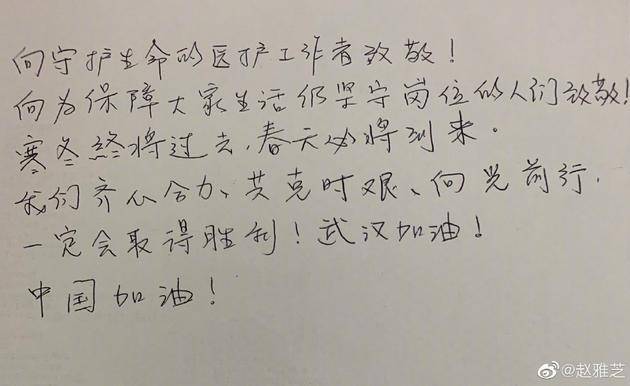 向守护生命的医护工作者致敬！
向为保障大家生活仍坚守岗位的人们致敬！
寒冬终将过去，春天必将到来。
我们齐心合力、共克时艰、向光前行，
一定会取得胜利！武汉加油！
中国加油！
@赵雅芝